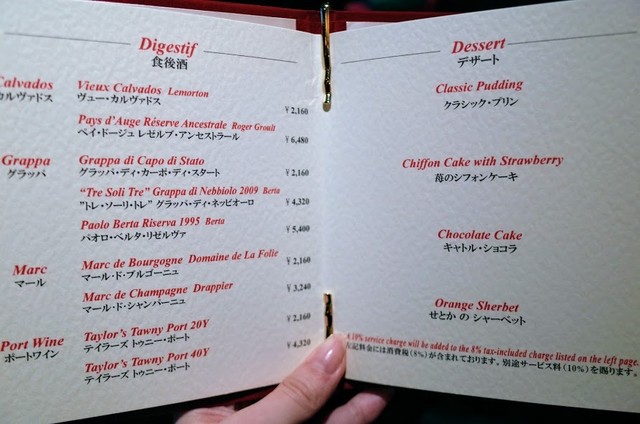 Digestif
食後酒
Calvados
カルヴァドス
Vieux Calvados Lemorton
ヴュー・カルヴァドス
¥2,160
Pays d'Auge Réserve Ancestrale Roger Groult
ペイ・ドージュ レゼルブ・アンセストラール
¥6,480
Grappa
グラッパ
Grappa di Capo di Stato
グラッパ・ディ・カーポ・ディ・スタート
¥2,160
"Tre Soli Tre" Grappa di Nebbiolo 2009 Berta
"トレ・ソーリ・トレ" グラッパ・ディ・ネッビオーロ
¥4,320
Paolo Berta Riserva 1995 Berta
パオロ・ベルタ・リゼルヴァ
¥5,400
Marc
マール
Marc de Bourgogne Domaine de La Folie
マール・ド・ブルゴーニュ
¥2,160
Marc de Champagne Drappier
マール・ド・シャンパーニュ
¥3,240
Port Wine
ポートワイン
Taylor's Tawny Port 20Y
テイラーズ トゥニー・ポート
¥2,160
Taylor's Tawny Port 40Y
テイラーズ トゥニー・ポート
¥4,320
Dessert
デザート
Classic Pudding
クラシック・プリン
Chiffon Cake with Strawberry
苺のシフォンケーキ
Chocolate Cake
キャトル・ショコラ
Orange Sherbet
せとか の シャーベット
A 10% service charge will be added to the 8% tax-included charge listed on the left page.
記料金には消費税（8%）が含まれております。別途サービス料（10%）を賜ります。